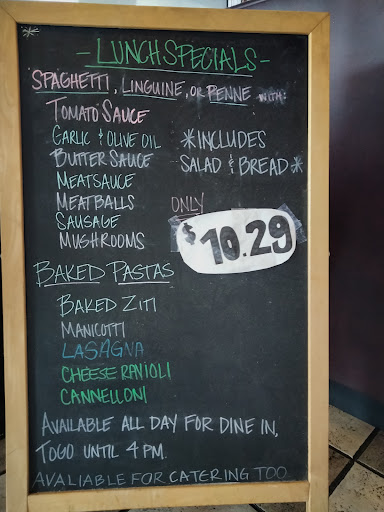 - LUNCH SPECIALS -
SPAGHETTI, LINGUINE, OR PENNE WITH:
TOMATO SAUCE
GARLIC & OLIVE OIL
BUTTER SAUCE
MEATSAUCE
MEATBALLS
SAUSAGE
MUSHROOMS
*INCLUDES
SALAD & BREAD*
ONLY
$10.29
BAKED PASTAS
BAKED ZITI
MANICOTTI
LASAGNA
CHEESE RAVIOLI
CANNELLONI
AVAILABLE ALL DAY FOR DINE IN,
TOGO UNTIL 4 PM.
AVALIABLE FOR CATERING TOO